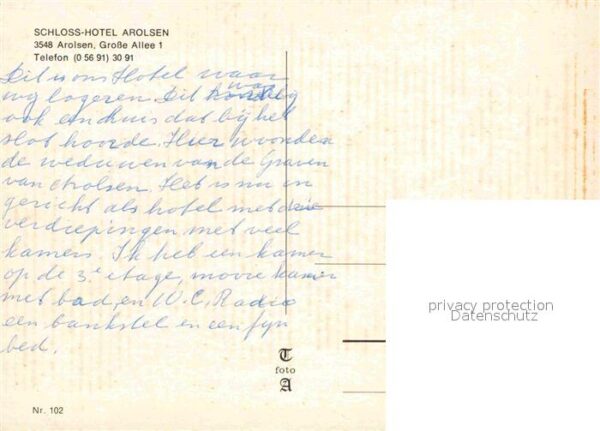 SCHLOSS-HOTEL AROLSEN
3548 Arolsen, Große Allee 1
Telefon (0 56 91) 30 91
Dit is ons Hotel waar
wij logeren. Dit was
ook een huis dat bij het
slot hoorde. Hier woonden
de weduwen van de Graven
van Arolsen. Het is nu in
gericht als hotel met drie
verdiepingen met veel
kamers. Ik heb een kamer
op de 3e etage, mooie kamer
met bad, en W.C. Radio
een bankstel en een fijn
bed.
privacy protection
Datenschutz
T
foto
A
Nr. 102